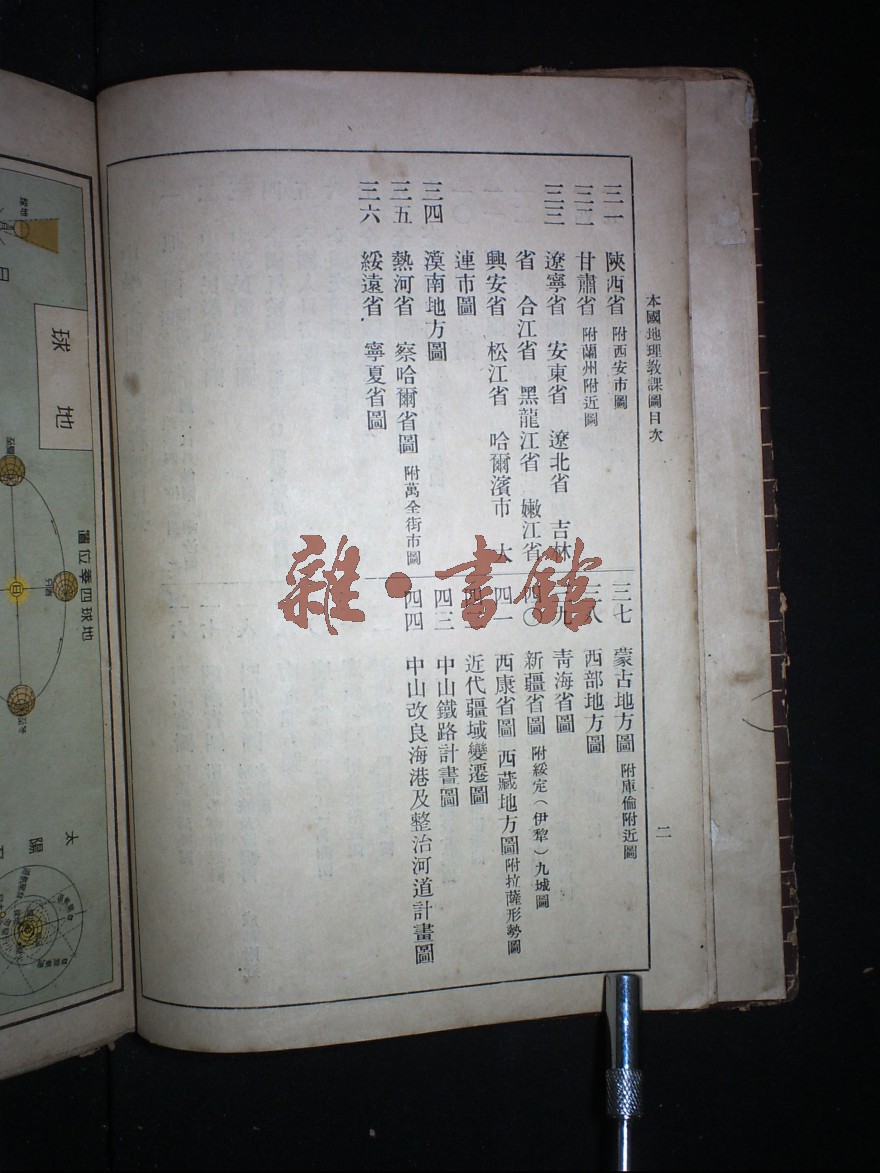 本國地理敎課圖目次
二
三一 陝西省 附西安市圖
三二 甘肅省 附蘭州附近圖
三三 遼寧省 安東省 遼北省 吉林
省 合江省 黑龍江省 嫩江省
興安省 松江省 哈爾濱市 大
連市圖
三四 漠南地方圖
三五 熱河省 察哈爾省圖 附萬全街市圖
三六 綏遠省 寧夏省圖
三七 蒙古地方圖 附庫倫附近圖
三八 西部地方圖
三九 靑海省圖
四〇 新疆省圖 附綏定(伊犂)九城圖
四一 西康省圖 西藏地方圖 附拉薩形勢圖
四二 近代疆域變遷圖
四三 中山鐵路計畫圖
四四 中山改良海港及整治河道計畫圖
雜·書館
地球
地球四季位圖
日
太陽